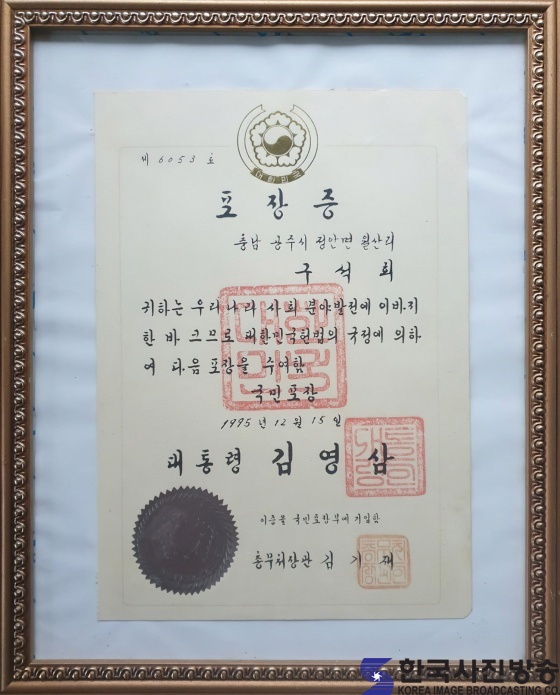 대한민국
제 6053 호
포장증
충남 공주시 정안면 월산리
구석회
귀하는 우리나라 사회 분야발전에 이바지
한 바 크므로 대한민국헌법의 규정에 의하
여 다음 포장을 수여함
국민포장
1995년 12월 15일
대통령 김영삼
이증을 국민포장부에 기입함
총무처장관 김기재
한국사진방송
KOREA IMAGE BROADCASTING